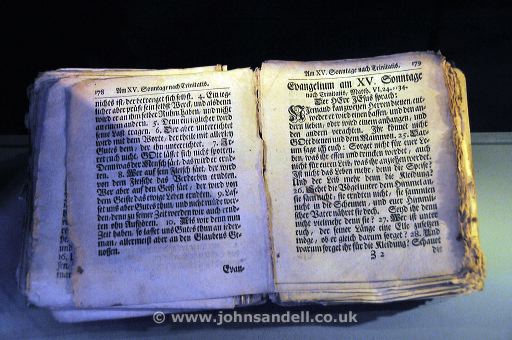 178 Am XV. Sonntage nach Trinitatis.
nichts ist, der betreuget sich selbst. 4. Ein ieg-
licher aber prüfe sein selbst Werck, und alsdenn
wird er an ihm selber Ruhm haben, und nicht
an einem andern. 5. Denn ein ieglicher wird
seine Last tragen. 6. Der aber unterrichtet
wird mit dem Worte, der theile mit allerley
Gutes dem, der ihn unterrichtet. 7.
Irret euch nicht, GOtt lässet sich nicht spotten.
Denn was der Mensch säet, das wird er ernd-
ten. 8. Wer auf sein Fleisch säet, der wird
von dem Fleische das Verderben erndten.
Wer aber auf den Geist säet, der wird von
dem Geiste das ewige Leben erndten. 9. Las-
set uns aber Gutes thun, und nicht müde wer-
den, denn zu seiner Zeit werden wir auch ernd-
ten ohn Aufhören. 10. Als wir denn nun
Zeit haben, so lasset uns Gutes thun an ieder-
man, allermeist aber an den Glaubens Ge-
nossen.
Evan-
Am XV. Sonntage nach Trinitatis. 179
Evangelium am XV. Sonntage
nach Trinitatis, Matth. VI, 24.-34.
Der HErr JEsus sprach:
Niemand kan zweyen Herren dienen, ent-
weder er wird einen hassen, und den an-
dern lieben, oder wird einem anhangen, und
den andern verachten. Ihr könnet nicht
GOtt dienen und dem Mammon. 25. Dar-
um sage ich euch: Sorget nicht für euer Le-
ben, was ihr essen und trincken werdet, auch
nicht für euren Leib, was ihr anziehen werdet.
Ist nicht das Leben mehr, denn die Speise?
Und der Leib mehr denn die Kleidung?
26. Sehet die Vögel unter dem Himmel an,
sie säen nicht, sie erndten nicht, sie sammlen
nicht in die Scheunen, und euer Himmli-
scher Vater nähret sie doch. Seyd ihr denn
nicht vielmehr denn sie? 27. Wer ist unter
euch, der seiner Länge eine Elle zusetzen
möge, ob er gleich darum sorget? 28. Und
warum sorget ihr für die Kleidung? Schauet
3 2 die
© www.johnsandell.co.uk